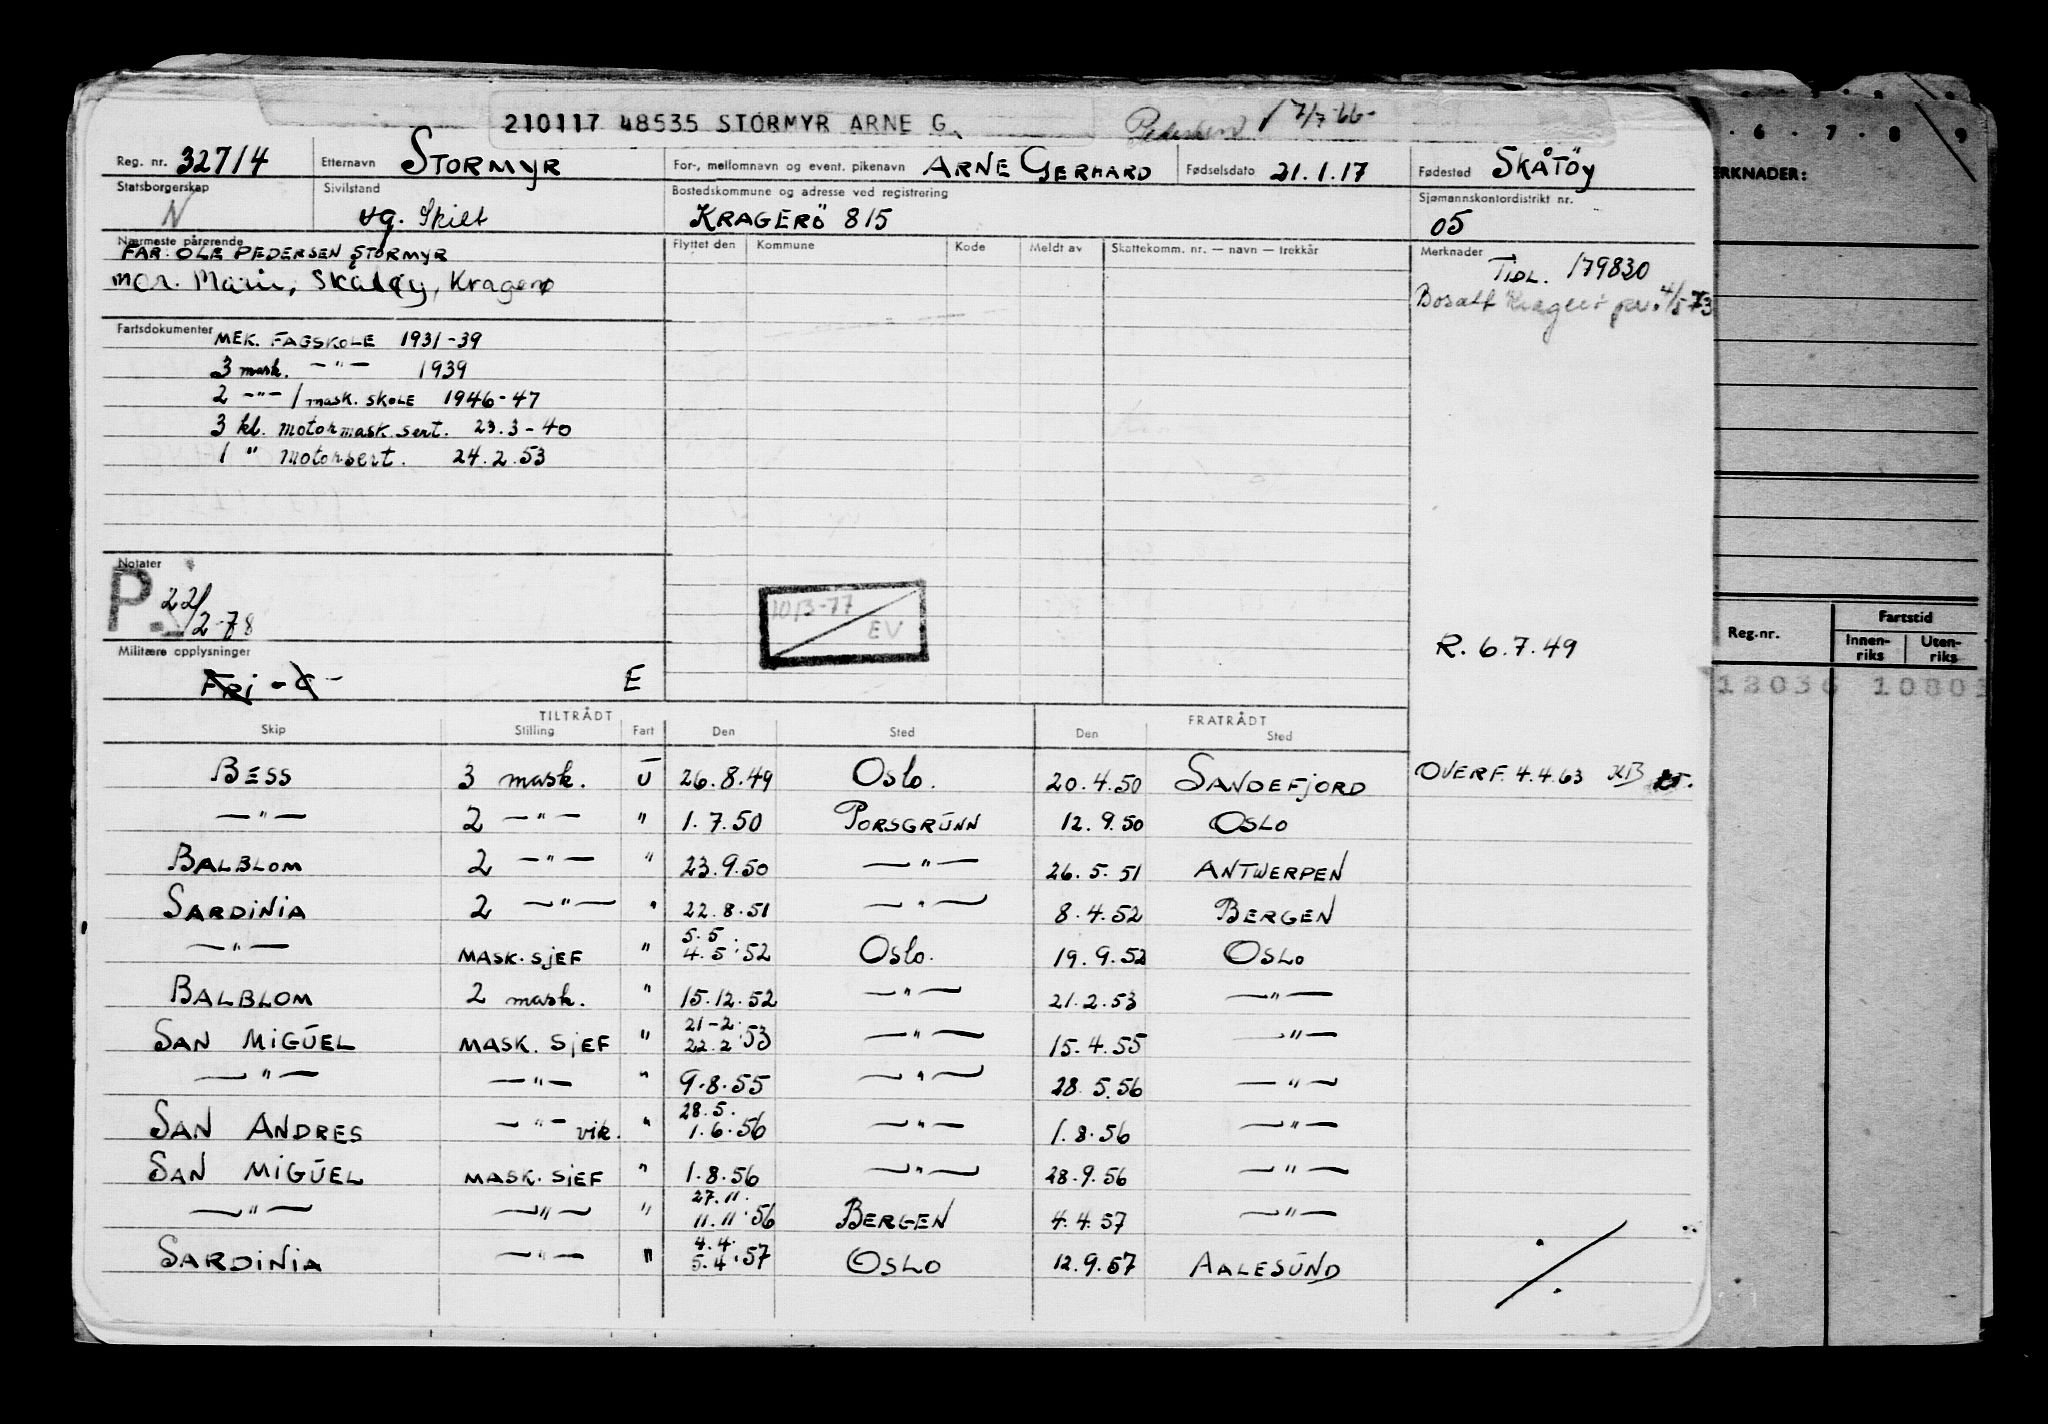 210117 48535 STORMYR ARNE G. Pedersen 17/7-66-
Reg. nr. 32714 Etternavn STORMYR For-, mellomnavn og event. pikenavn ARNE GERHARD Fødselsdato 21.1.17 Fødested SKÅTÖY
Statsborgerskap N Sivilstand ug. Skilt Bostedskommune og adresse ved registrering KRAGERÖ 815 Sjømannskontordistrikt nr. 05
Nærmeste pårørende Flyttet den Kommune Kode Meldt av Skattekomm. nr. — navn — trekkår Merknader
FAR: OLE PEDERSEN STORMYR TIDL. 179830
mor. Marie, Skåtøy, Kragerø Bosatt Kragerø pr. 4/5-73
Fartsdokumenter MEK. FAGSKOLE 1931-39
3 mask. —"— 1939
2 —"— / mask. SKOLE 1946-47
3 kl. motormask.sert. 23.3-40
1 " motorsert. 24.2.53
Notater
P. 22/2-78
10/3-77 EV
R. 6.7.49
Militære opplysninger
FRI - E
TILTRÅDT FRATRÅDT
Skip Stilling Fart Den Sted Den Sted
BESS 3 mask. U 26.8.49 Oslo. 20.4.50 SANDEFJORD OVERF. 4.4.63 KB
—"— 2 —"— " 1.7.50 PORSGRUNN 12.9.50 OSLO
BALBLOM 2 —"— " 23.9.50 —"— 26.5.51 ANTWERPEN
SARDINIA 2 —"— " 22.8.51 —"— 8.4.52 BERGEN
—"— MASK.SJEF " 5.5. 4.5.52 Oslo. 19.9.52 OSLO
BALBLOM 2 mask. " 15.12.52 —"— 21.2.53 —"—
SAN MIGUEL MASK. SJEF " 21-2. 22.2.53 —"— 15.4.55 —"—
—"— —"— " 9.8.55 —"— 28.5.56 —"—
SAN ANDRES —"— vik. " 28.5. 1.6.56 —"— 1.8.56 —"—
SAN MIGUEL MASK.SJEF " 1.8.56 —"— 28.9.56 —"—
—"— —"— " 27.11. 11.11.56 BERGEN 4.4.57 —"—
SARDINIA —"— " 4.4. 5.4.57 OSLO 12.9.57 AALESUND
6 7 8 9
ERKNADER:
Reg.nr. Fartstid
Innenriks Utenriks
10801